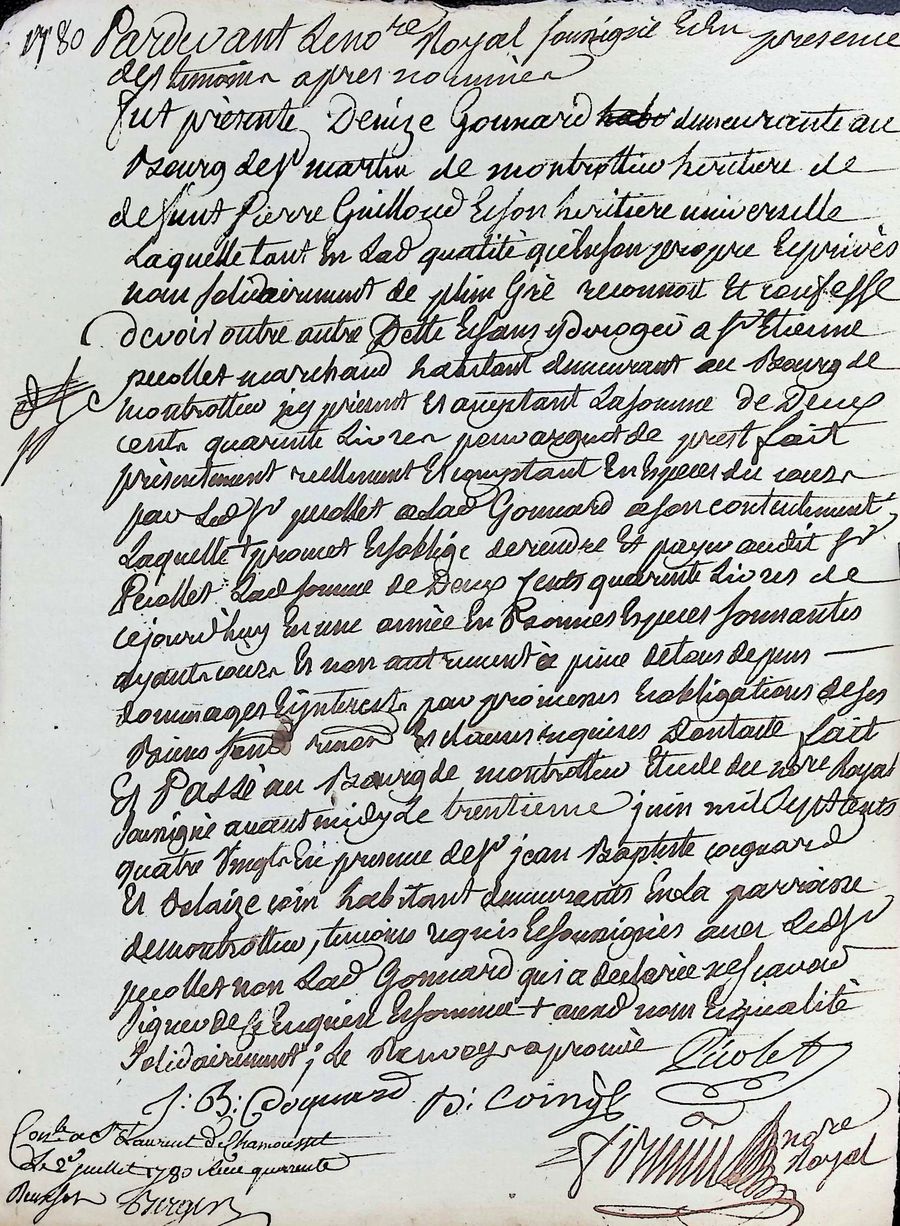 1780 Pardevant le no.re Royal soussigné Et En presence
des temoins apres nommés
fut présente Denize Gonnard demeurante au
Bourg de st martin de montrottier heritiere de
defunt Pierre Guilloud Et son heritiere universelle
Laquelle tant En Lad qualité qu'En son propre Et privés
nom solidairement de plein Gré reconnoit Et confesse
devoir outre autre Dette Et sans y deroger a sr Etienne
pecollet marchand habitant demeurant au Bourg de
montrottier icy présent Et acceptant La somme de Deux
cents quarante Livres pour argent de prest fait
présentement reellement Et comptant En Especes du cours
par Led sr pecollet a Lad Gonnard a son contentement,
Laquelle + promet Et s'oblige de rendre Et payer audit sr
Pecollet Lad somme de Deux Cents quarante Livres de
cejourd'huy En une année En Bonnes Especes sonnantes
ayant cours Et non autrement a peine de tous depens
dommages Et interests par promesses Et obligations de ses
Biens Et clauses requises Dont acte fait
Et Passé au Bourg de montrottier Etude du nore Royal
soussigné avant midy Le trentieme juin mil sept Cents
quatre vingt En presence de sr jean Baptiste coquard
Et Blaize coin habitant demeurants En La parroisse
de montrottier, temoins requis Et soussignés avec Led sr
pecollet non Lad Gonnard qui a declarée ne scavoir
signer de ce Enquise Et sommée + aud nom Et qualité
solidairement; Le Renvoy approuvé Picolet
J: B: Coquard B: Coing
nore Royal
Con.lé a St Laurent de Chamousset
Le 2e juillet 1780 Reçu quarante